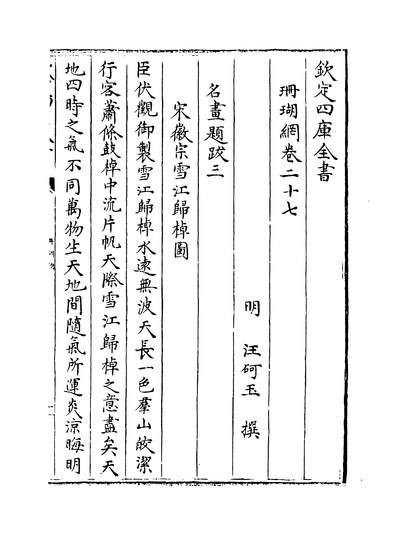 欽定四庫全書
珊瑚網卷二十七
明　汪砢玉　撰
名畫題跋三
宋徽宗雪江歸棹圖
臣伏觀御製雪江歸棹水遠無波天長一色羣山皎潔
行客蕭條鼓棹中流片帆天際雪江歸棹之意盡矣天
地四時之氣不同萬物生天地間隨氣所運炎涼晦明